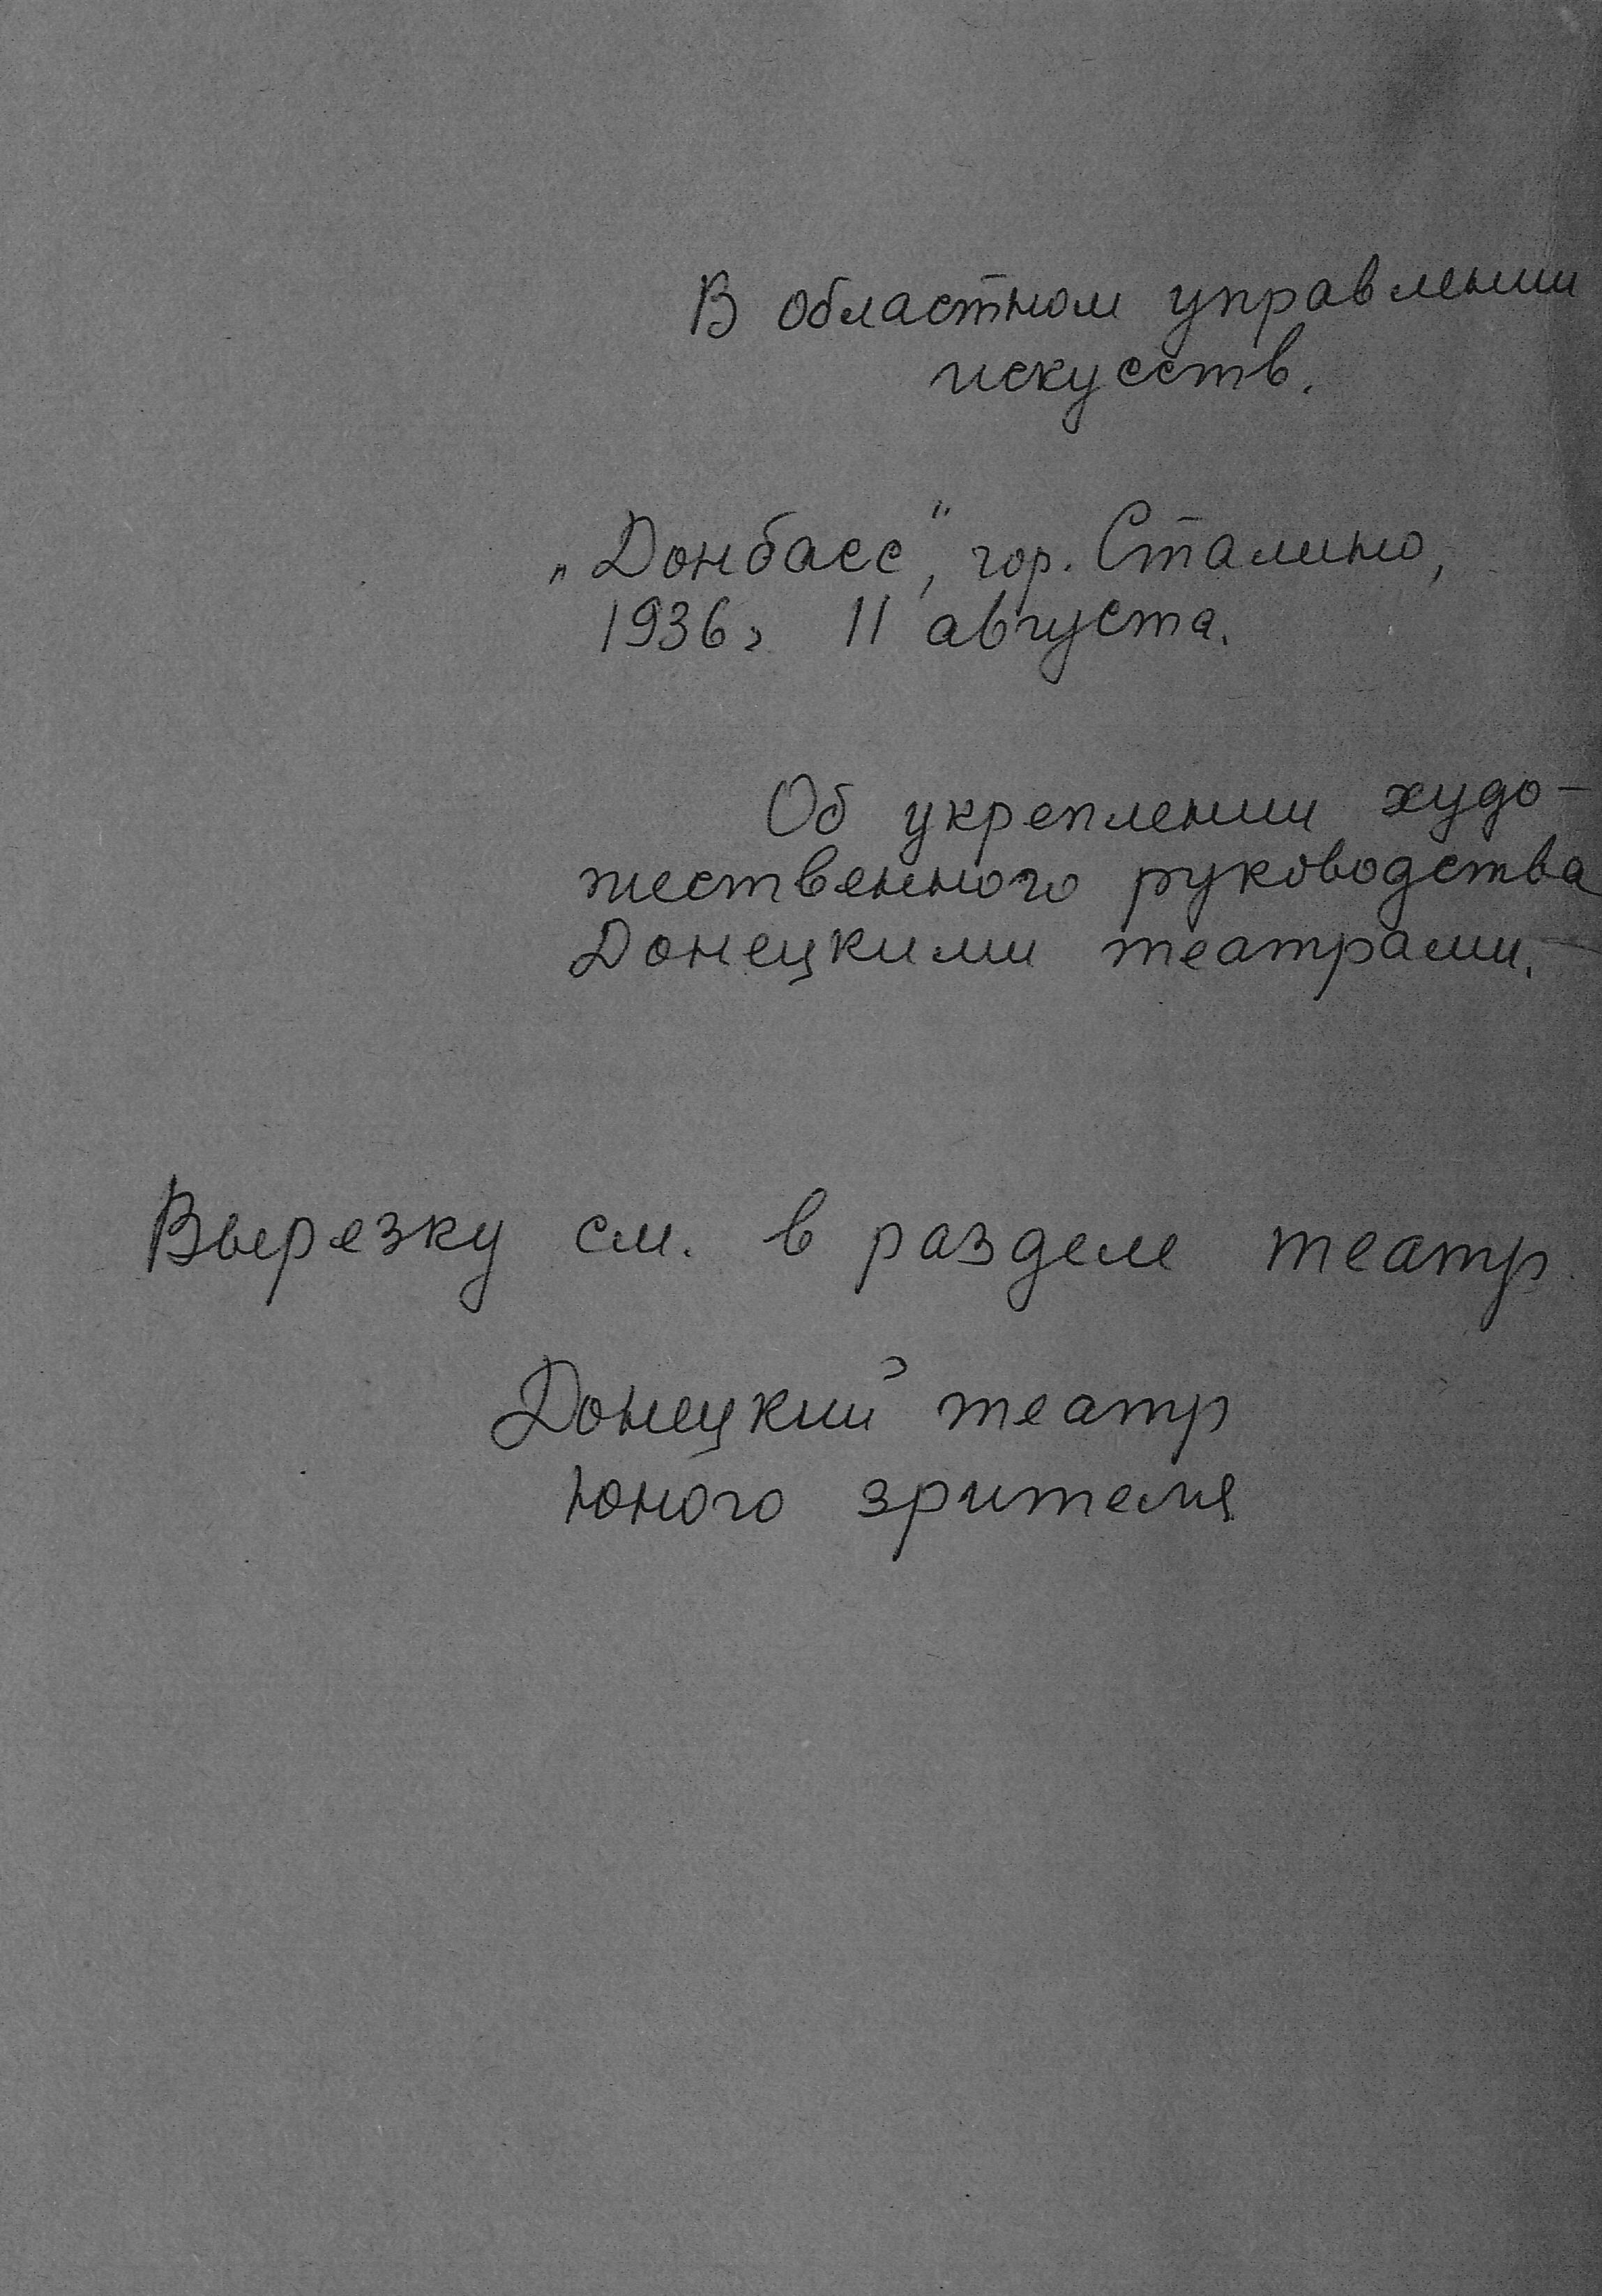 В областном управлении
искусств.
„Донбасс", гор. Сталино,
1936г 11 августа.
Об укреплении худо-
жественного руководства
Донецкими театрами.
Вырезку см. в разделе театр
Донецкий театр
юного зрителя